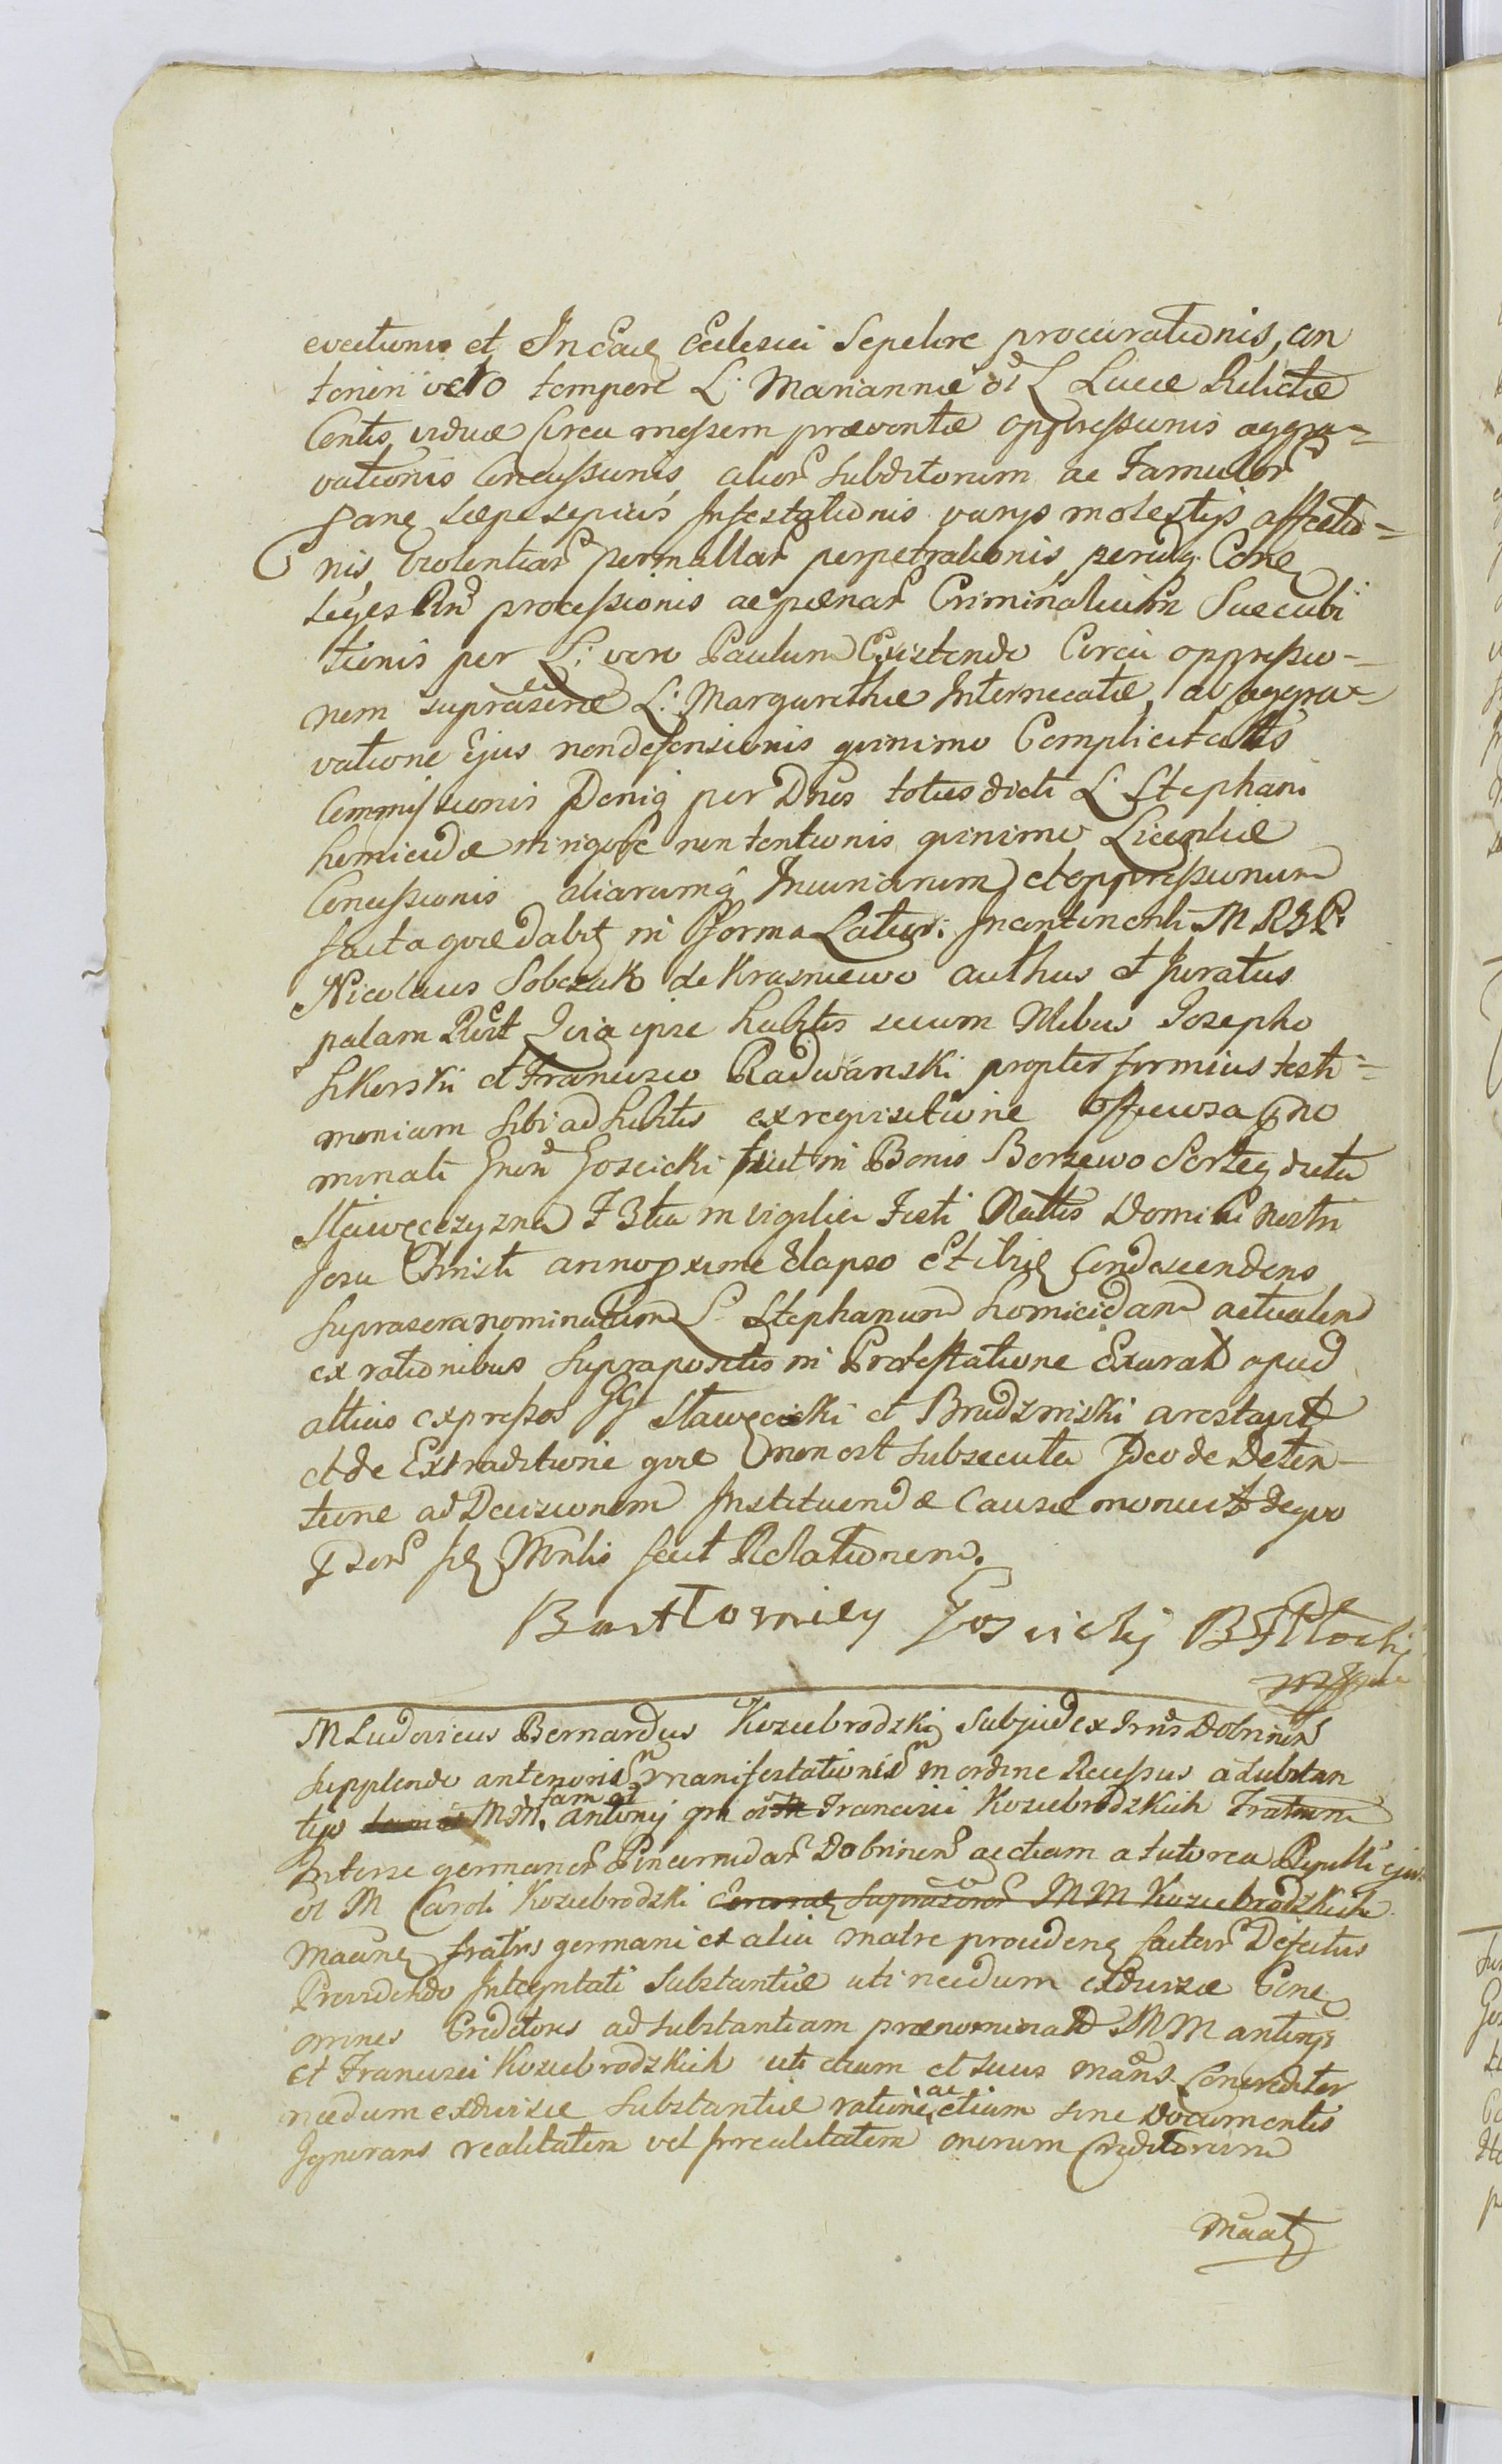 evectionis et In Ecclesia Sepelire procurationis, an
teriori vero tempore L. Mariannæ ol L Lucæ Relictæ
Centis viduæ Circa messem præventæ oppressionis aggra=
vationis Concussionis, alior Subditorum ac Famulor
sæpe sæpius Infestationis varijs molestijs affectio=
nis, Violentiar permultar perpetrationis
Leges processionis ac pænar Criminalium Succubi
tionis per L: vero Paulum Existendo Circa oppressio-
nem suprascræ L: Margarethæ Internecatæ, ab aggra=
vatione Ejus non defensionis quinimo Complicitatis
Commissionis Deniq per Dnos toties dicti L Stephani
homicidæ non tentionis quinimo Licentiæ
Concessionis aliarumq Iniuriarum et oppressionum
facta quæ dabit in Forma Latiori. Incontinenti M R G P.
Nicolaus Sobczak de Krasniewo authus et Juratus
palam Rcit Quia ipse habitis secum Nlibus Josepho
Sikorski et Francisco Radwański propter firmius testi=
monium sibi adhibitis ex requisitione officiosa no
minati Gnen Goscicki fuit in Bonis Borzewo Sorteq dicta
Sławęczyzna F 3tia in vigilia Festi Nattis Domini Nostri
Jesu Christi anno pxime Elapso et ibiq Condescendens
suprascra nominatum L. Stephanum homicidam actualem
ex rationibus supra positis in Protestatione Exarat apud
altius expressos GG Sławęcicki et Brudzinski arestavit
et de Extraditione quæ non est subsecuta Ideo de Deten-
tione ad Decisionem Instituendæ Causæ monuit de quo
fecit Relationem.
Bartłomiey Goscicki B G Płocki
mppa
M Ludovicus Bernardus Koziebrodzki Subjudex Trris Dobrinen
supplendo anterioris manifestationis in ordine Recessus a substan
tijs MM. tam ol Antonij qm ol Francisci Koziebrodzkich Fratrum
Interse germanor Pincernidar Dobrinen ac etiam a tutorea Pupilli ejus
ol M Caroli Koziebrodzki suprascror MM Koziebrodzkich
fratris germani ex alia matre procedenq factar Defectus
Providendo Integritati Substantiæ uti necdum exdivisæ Cone
omnes Creditores ad substantiam prænominator MM Antonij
et Francisci Koziebrodzkich uti etiam et suus Mans Concreditor
necdum exdivisæ Substantiæ ratione ac etiam sine Documentis
Ignorans realitatem vel irrealitatem onerum Creditorum
Maat